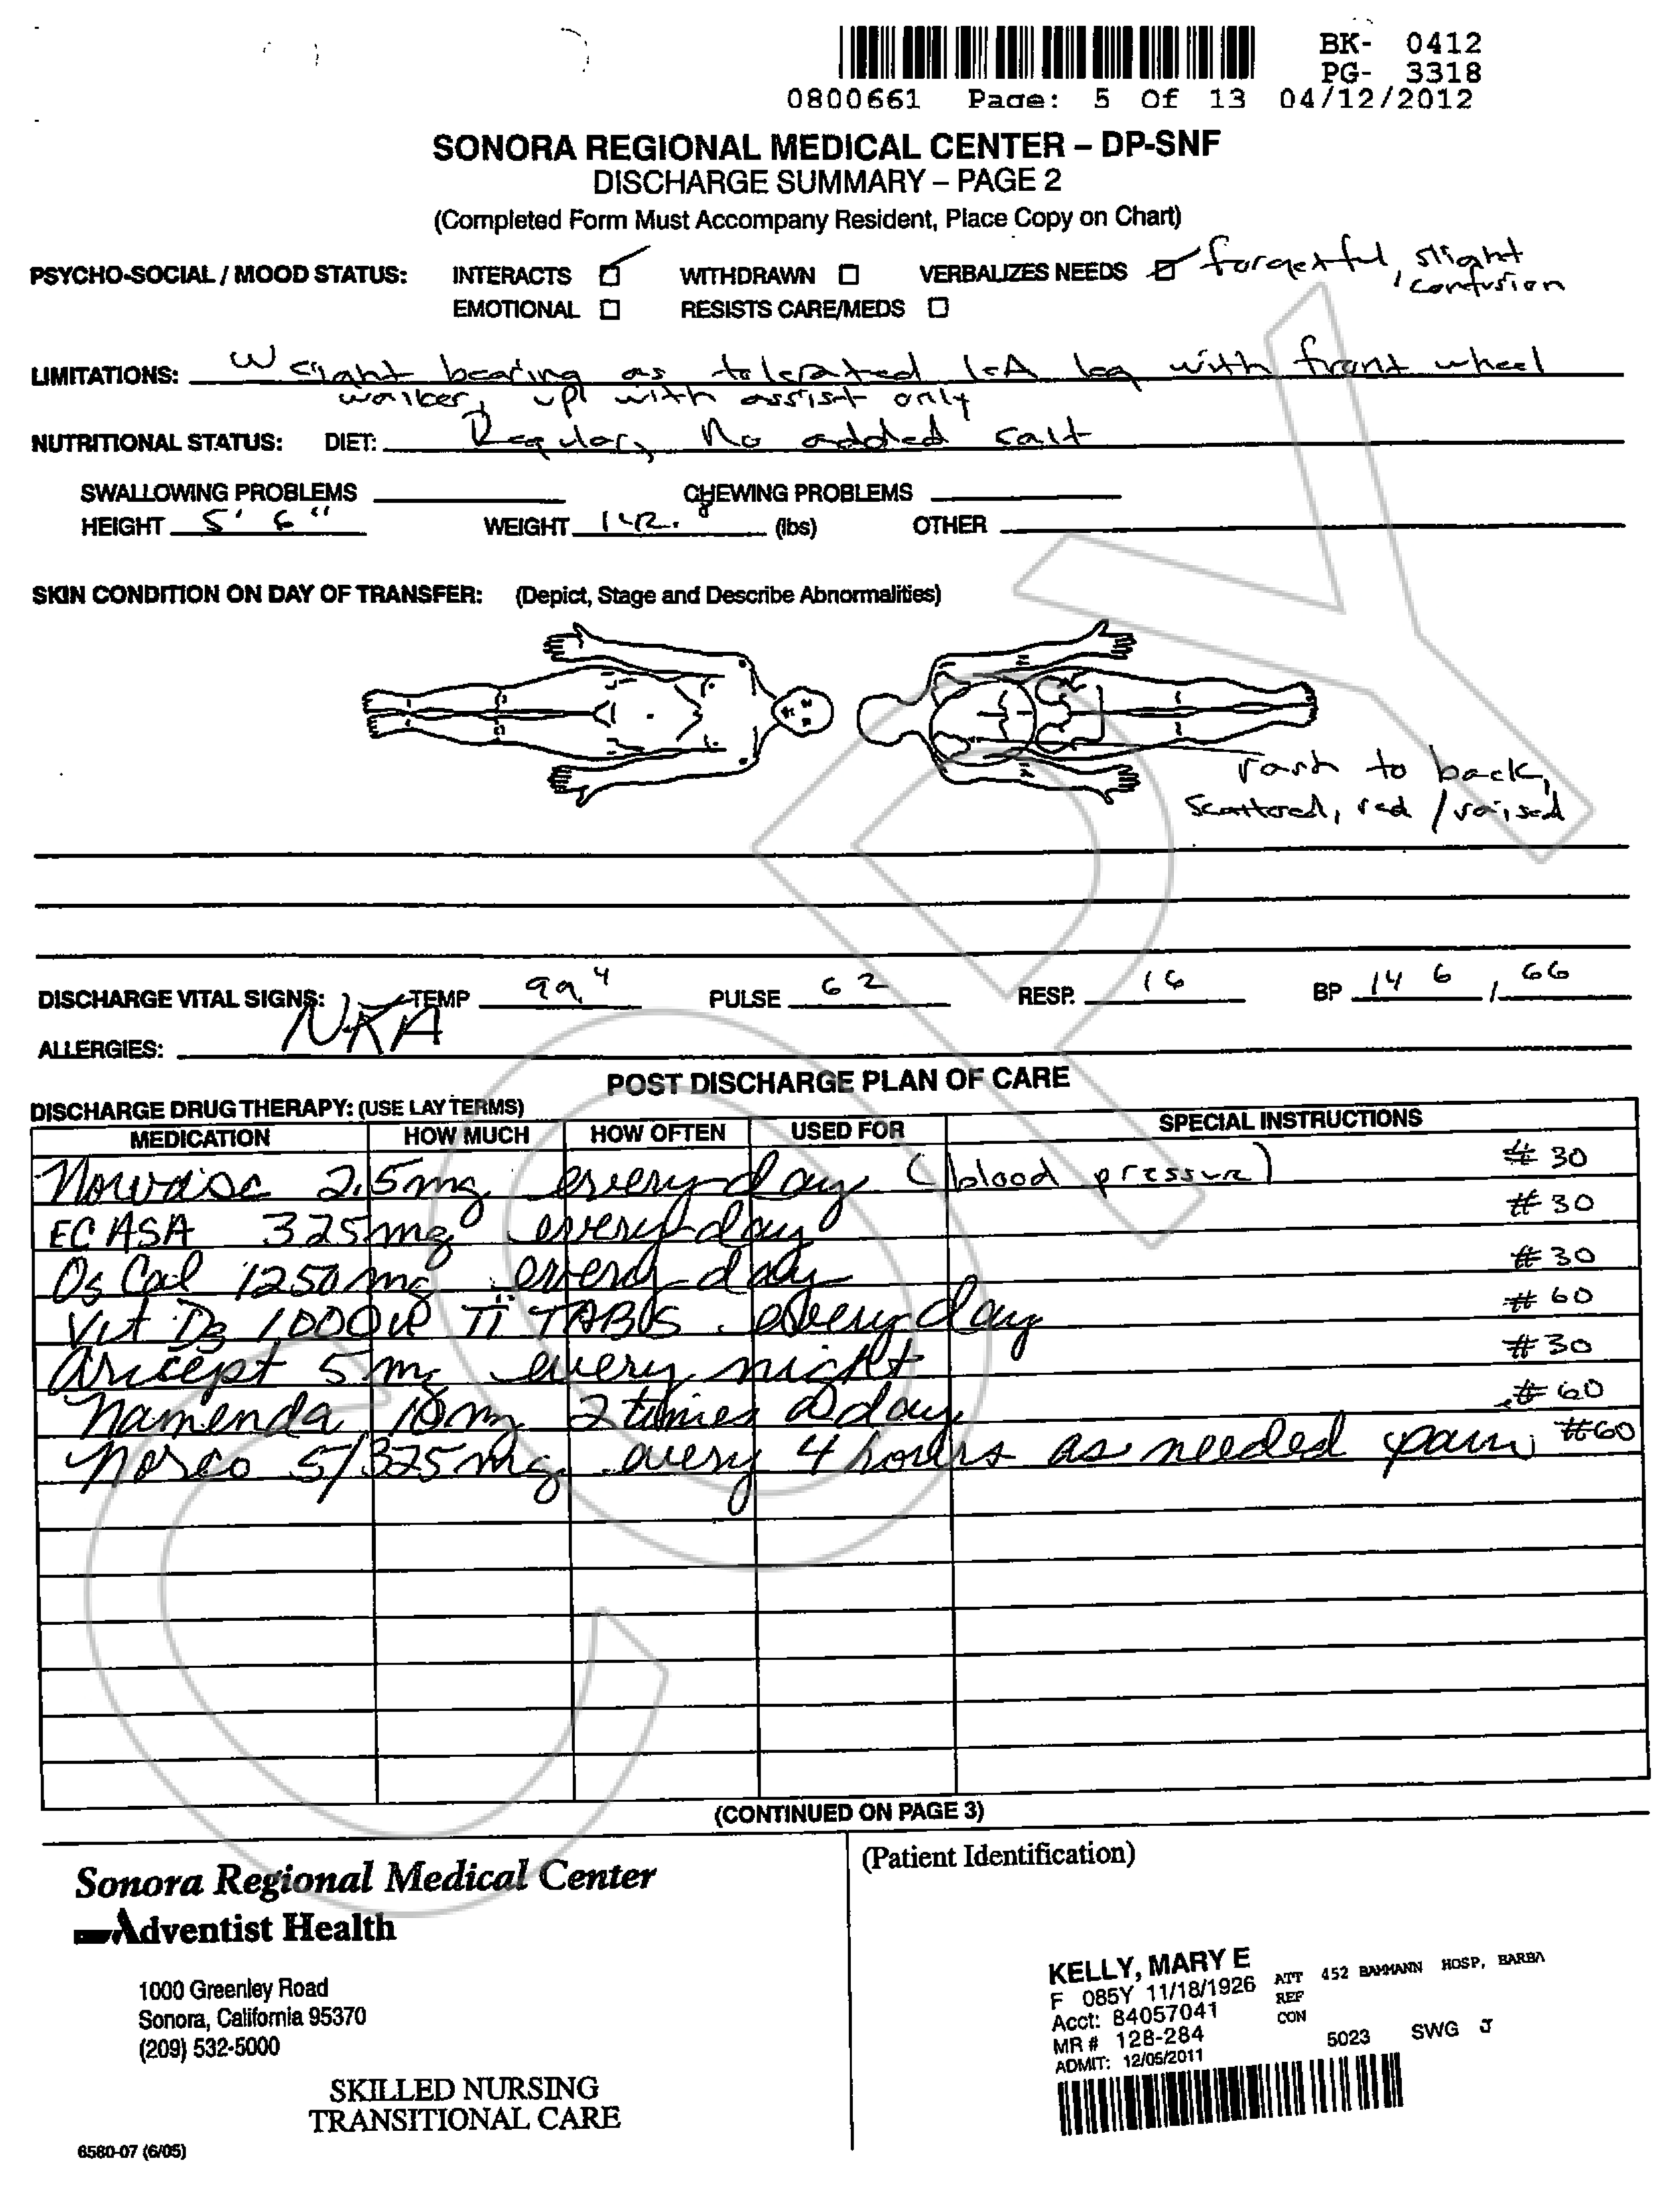 BK- 0412
PG- 3318
0800661 Page: 5 Of 13 04/12/2012
SONORA REGIONAL MEDICAL CENTER – DP-SNF
DISCHARGE SUMMARY – PAGE 2
(Completed Form Must Accompany Resident, Place Copy on Chart)
PSYCHO-SOCIAL / MOOD STATUS: INTERACTS WITHDRAWN VERBALIZES NEEDS forgetful, slight
confusion
EMOTIONAL RESISTS CARE/MEDS
LIMITATIONS: Weight bearing as tolerated left leg with front wheel
walker, up with assist only
NUTRITIONAL STATUS: DIET: Regular, No added salt
SWALLOWING PROBLEMS CHEWING PROBLEMS
HEIGHT 5' 6" WEIGHT (lbs) OTHER
SKIN CONDITION ON DAY OF TRANSFER: (Depict, Stage and Describe Abnormalities)
rash to back,
scattered, red / raised
DISCHARGE VITAL SIGNS: TEMP 99.4 PULSE 62 RESP. 16 BP 146 / 66
ALLERGIES: NKA
POST DISCHARGE PLAN OF CARE
DISCHARGE DRUG THERAPY: (USE LAY TERMS)
MEDICATION HOW MUCH HOW OFTEN USED FOR SPECIAL INSTRUCTIONS
Norvasc 2.5mg every day (blood pressure) #30
EC ASA 325mg every day #30
Os Cal 1250mg every day #30
Vit D3 1,000 IU TABS every day #60
Aricept 5mg every night #30
Namenda 10mg 2 times a day #60
Norco 5/325mg every 4 hours as needed pain #60
(CONTINUED ON PAGE 3)
Sonora Regional Medical Center
Adventist Health
1000 Greenley Road
Sonora, California 95370
(209) 532-5000
SKILLED NURSING
TRANSITIONAL CARE
6580-07 (6/05)
(Patient Identification)
KELLY, MARY E
F 085Y 11/18/1926
Acct: 84057041
MR # 128-284
ADMIT: 12/05/2011
ATT 452 BAMMANN HOSP, BARBA
REF
CON
5023 SWG J
COPY